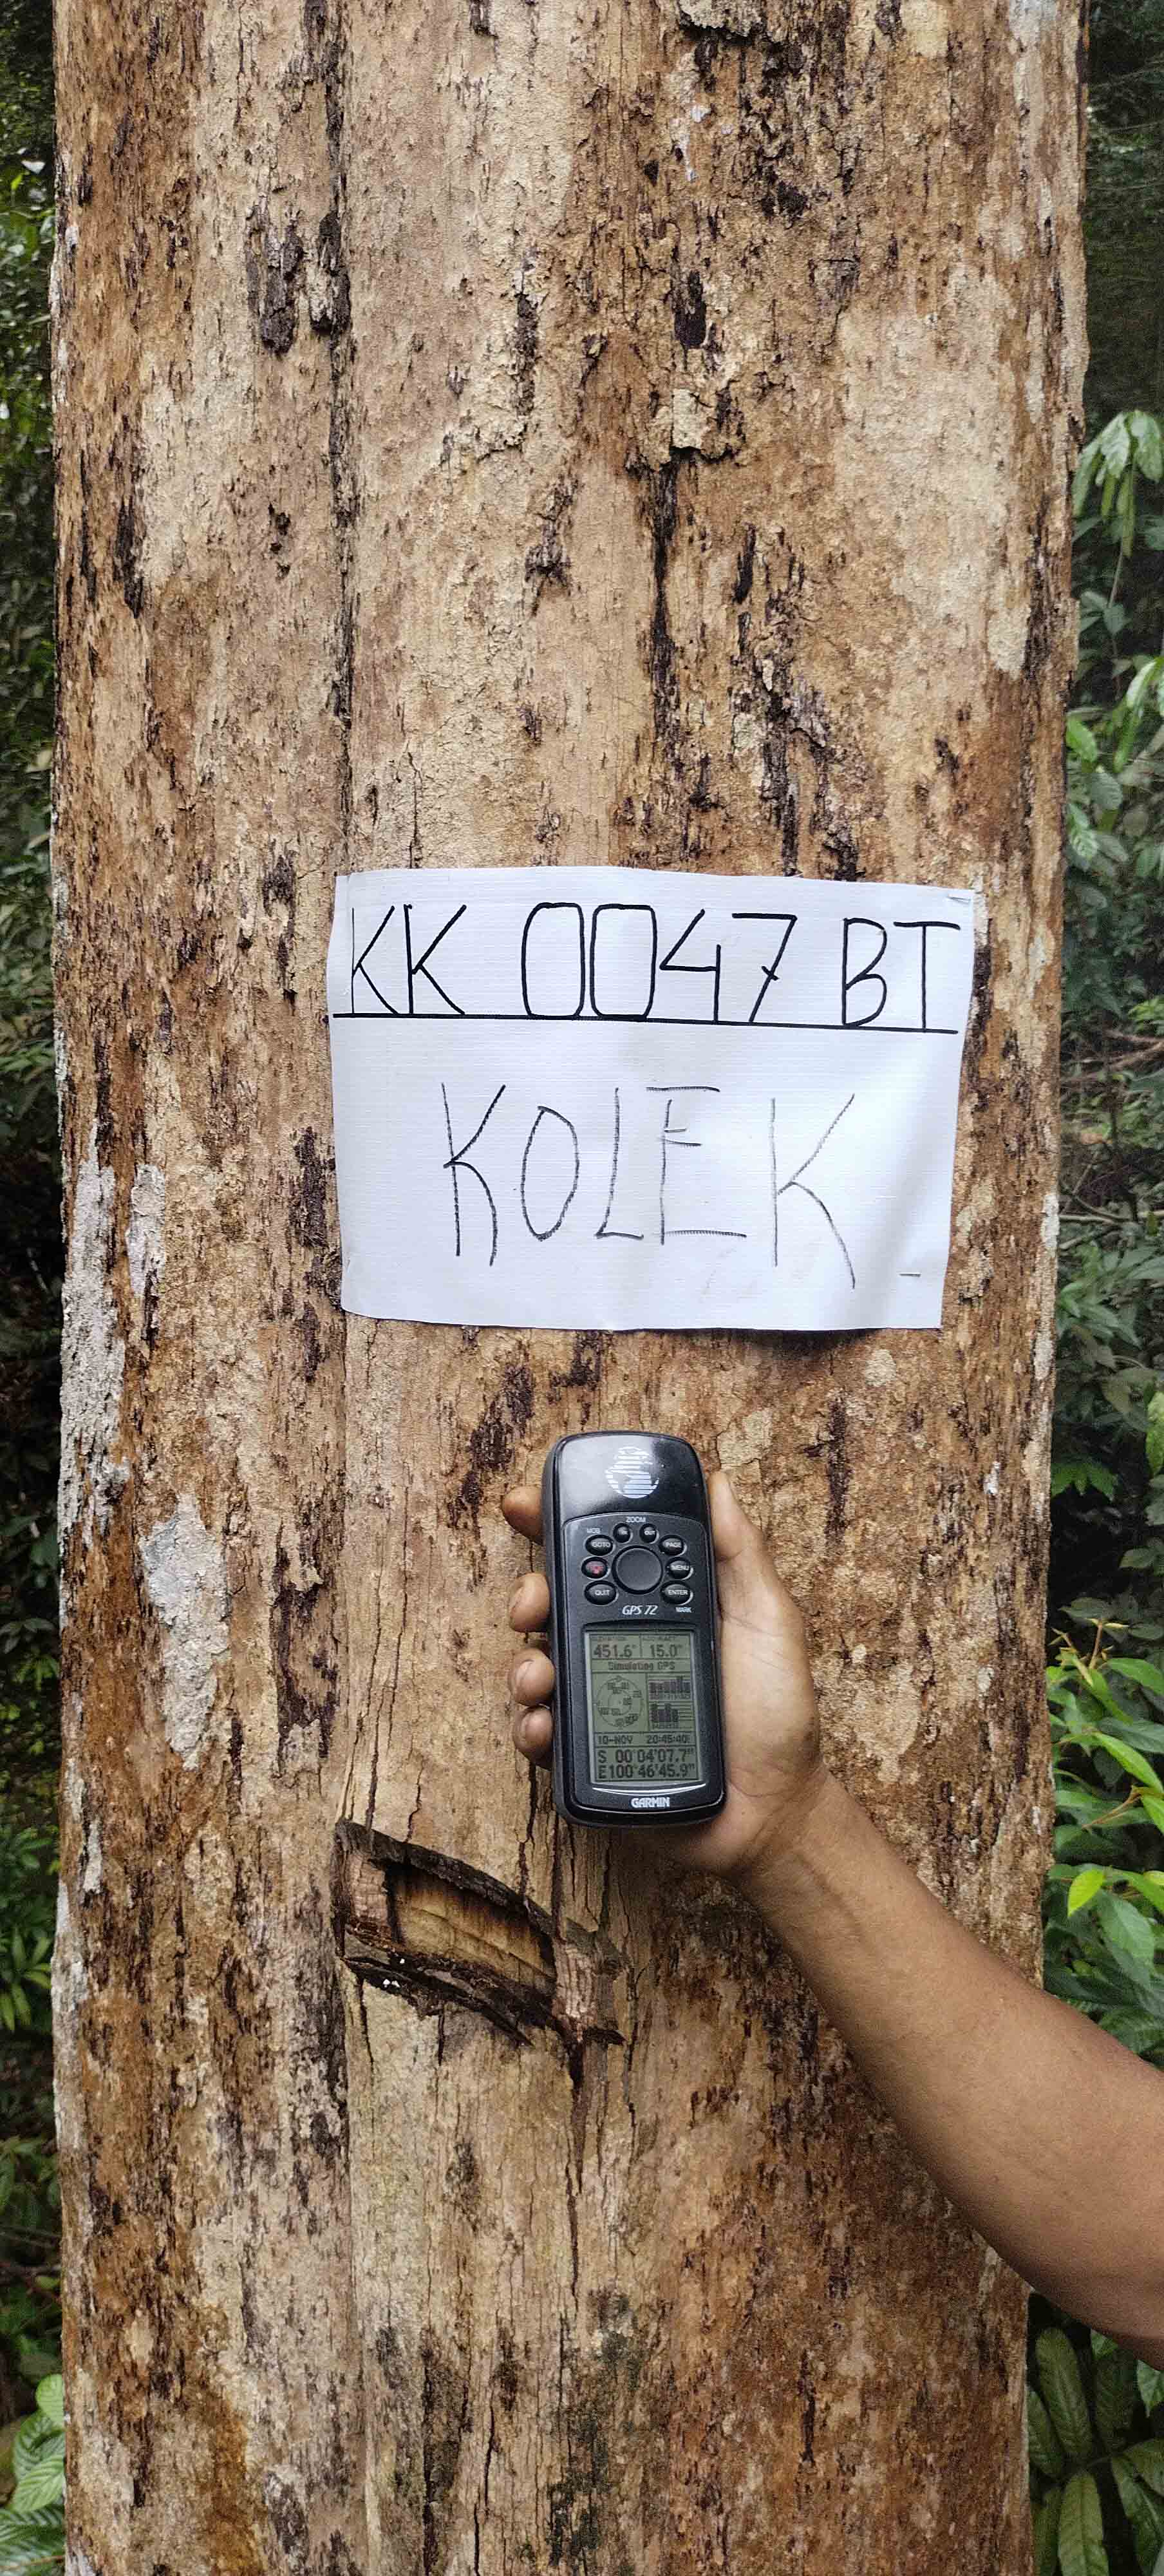 KK 0047 BT
KOLEK
ZOOM
MOB
IN
OUT
GOTO
PAGE
MENU
QUIT
ENTER
GPS 72
MARK
451.6" 15.0"
Simulating GPS
10-NOV 20:45:40
S 00°04'07.7"
E100°46'45.9"
GARMIN